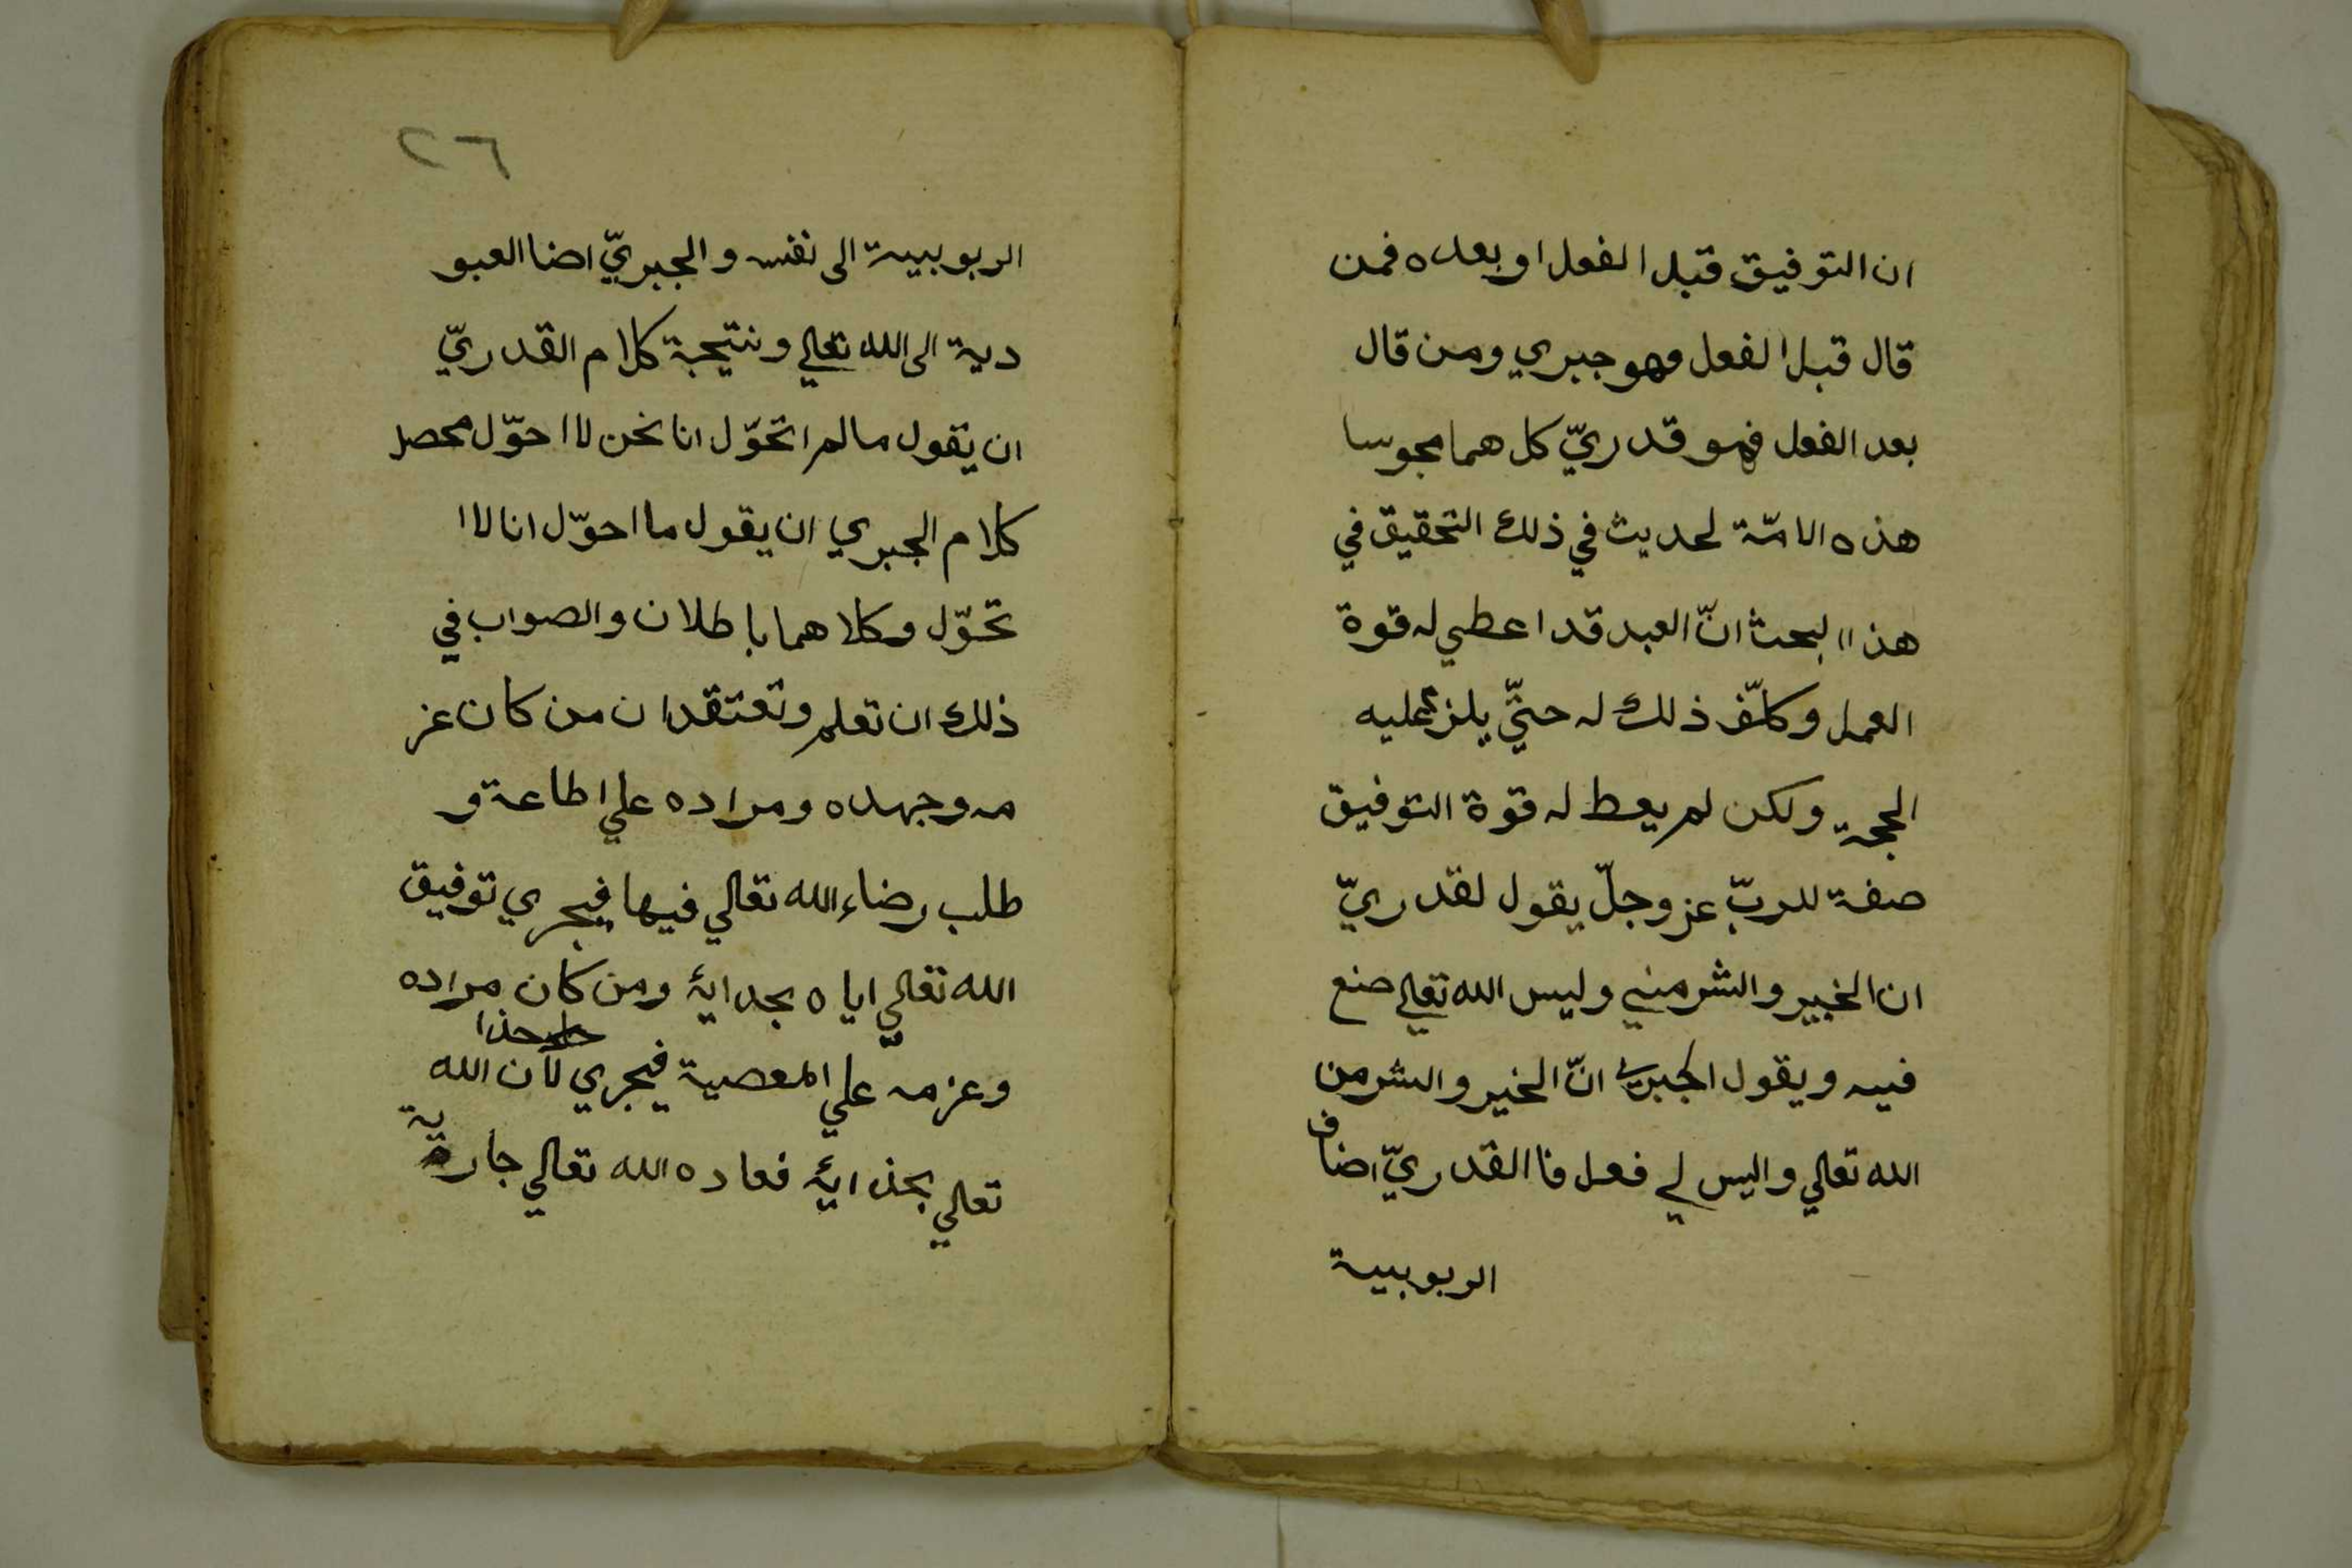 ان التوفيق قبل الفعل او بعده فمن
قال قبل الفعل فهو جبري ومن قال
بعد الفعل فهو قدريّ كل هما مجوسا
هذه الامّة لحديث في ذلك التحقيق في
هذا البحث انّ العبد قد اعطي له قوة
العمل وكلّف ذلك له حتيّ يلزم عليه
الحجة ولكن لم يعط له قوة التوفيق
صفة للربّ عز وجلّ يقول لقدريّ
ان الخير والشر مني وليس الله تعالي صنع
فيه ويقول الجبري انّ الخير والشر من
الله تعالي واليس لي فعل فا القدريّ اضاف
الربوبية
٢٦
الربوبية الى نفسه والجبريّ اضا العبو
دية الى الله تعالي ونتيجة كلام القدريّ
ان يقول ما لم اتحوّل انا نحن لا احوّل محصل
كلام الجبري ان يقول ما احوّل انا لا ا
تحوّل وكلاهما باطلان والصواب في
ذلك ان تعلم وتعتقد ان من كان عز
مه وجهده ومراده علي اطاعة و
طلب رضاء الله تعالي فيها فيجري توفيق
الله تعالي اياه بحدايۀ ومن كان مراده
وعزمه علي المعصية فيجري لان الله
تعالي بحذايۀ فعاده الله تعالي جارية